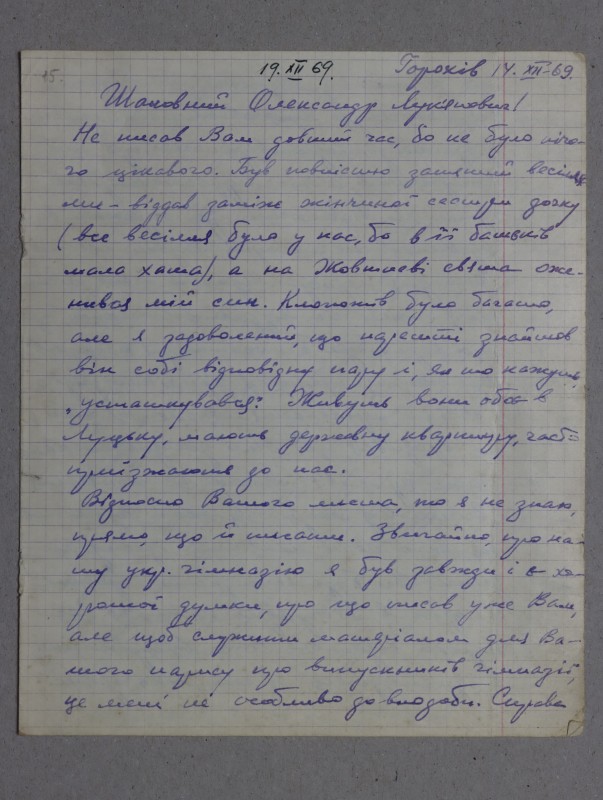 15.
19. XII 69.
Горохів 14. XII-69
Шановний Олександр Лук'янович!
Не писав Вам довший час, бо не було нічо-
го цікавого. Був повністю занятий весілля
ми – віддав заміж жінчиної сестри дочку
(все весілля було у нас, бо в її батьків
мала хата), а на Жовтневі свята оже-
нився мій син. Клопотів було багато,
але я задоволений, що нарешті знайшов
він собі відповідну пару і, як то кажуть,
"усташкувався". Живуть вони обоє в
Луцьку, мають державну квартиру, часто
приїзжають до нас.
Відносно Вашого листа, то я не знаю,
прямо, що й писати. Звичайно, про на-
шу укр. гімназію я був завжди і є хо-
рошої думки, про що писав уже Вам,
але щоб служити матеріалом для Ва-
шого нарису про випускників гімназії,
це мені не особливо до вподоби. Справа